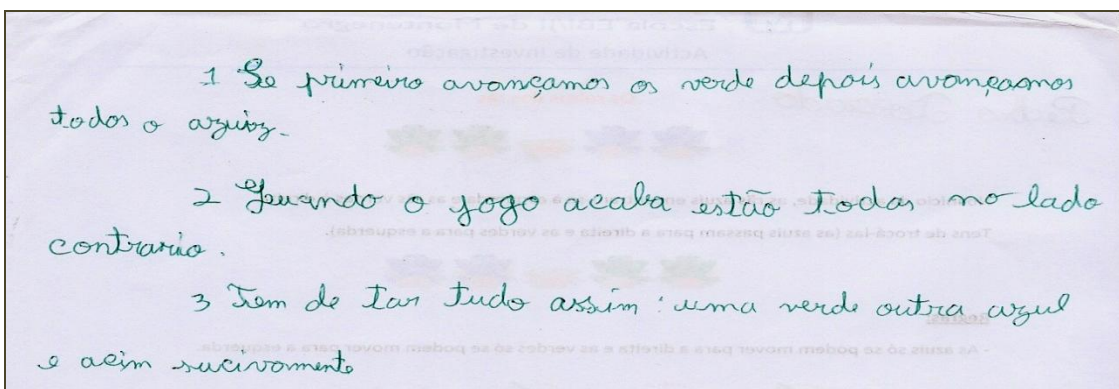 1 Se primeiro avançamos os verde depois avançaamos
todos o azuiz.
2 Quando o jogo acaba estão todas no lado
contrario.
3 Tem de tar tudo assim : uma verde outra azul
e acim sucivomente